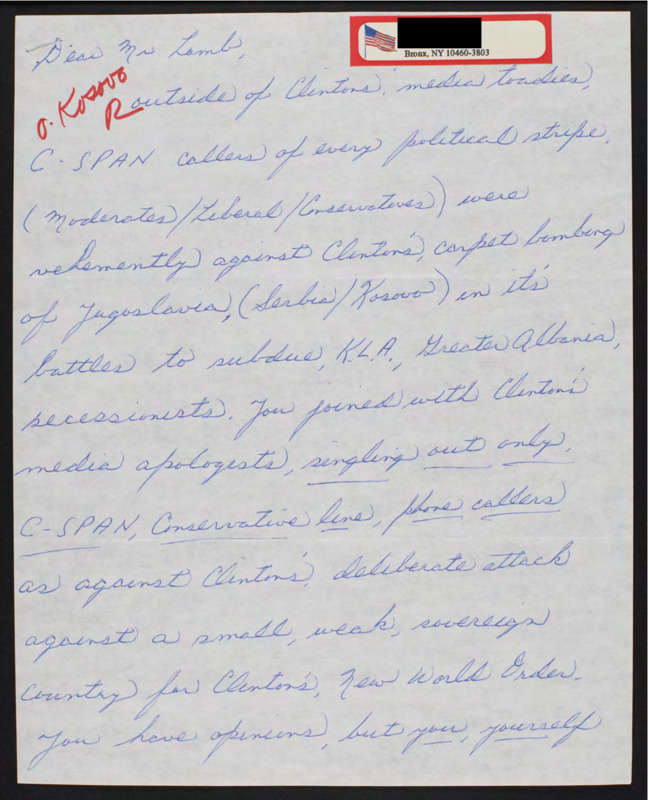 Bronx, NY 10460-3803
Dear Mr Lamb,
O. Kosovo
R
outside of Clintons', media toadies,
C-SPAN callers of every political stripe,
(Moderates/Liberal/Conservatives) were
vehemently against Clinton's, carpet bombing
of Jugoslavia, (Serbia/Kosovo) in it's
battles to subdue, K.L.A., Greater Albania,
secessionists. You joined with Clinton's
media apologists, singling out only,
C-SPAN, Conservative line, phone callers
as against Clinton's, deliberate attack
against a small, weak, sovereign
country for Clinton's, New World Order.
You have opinions, but you, yourself